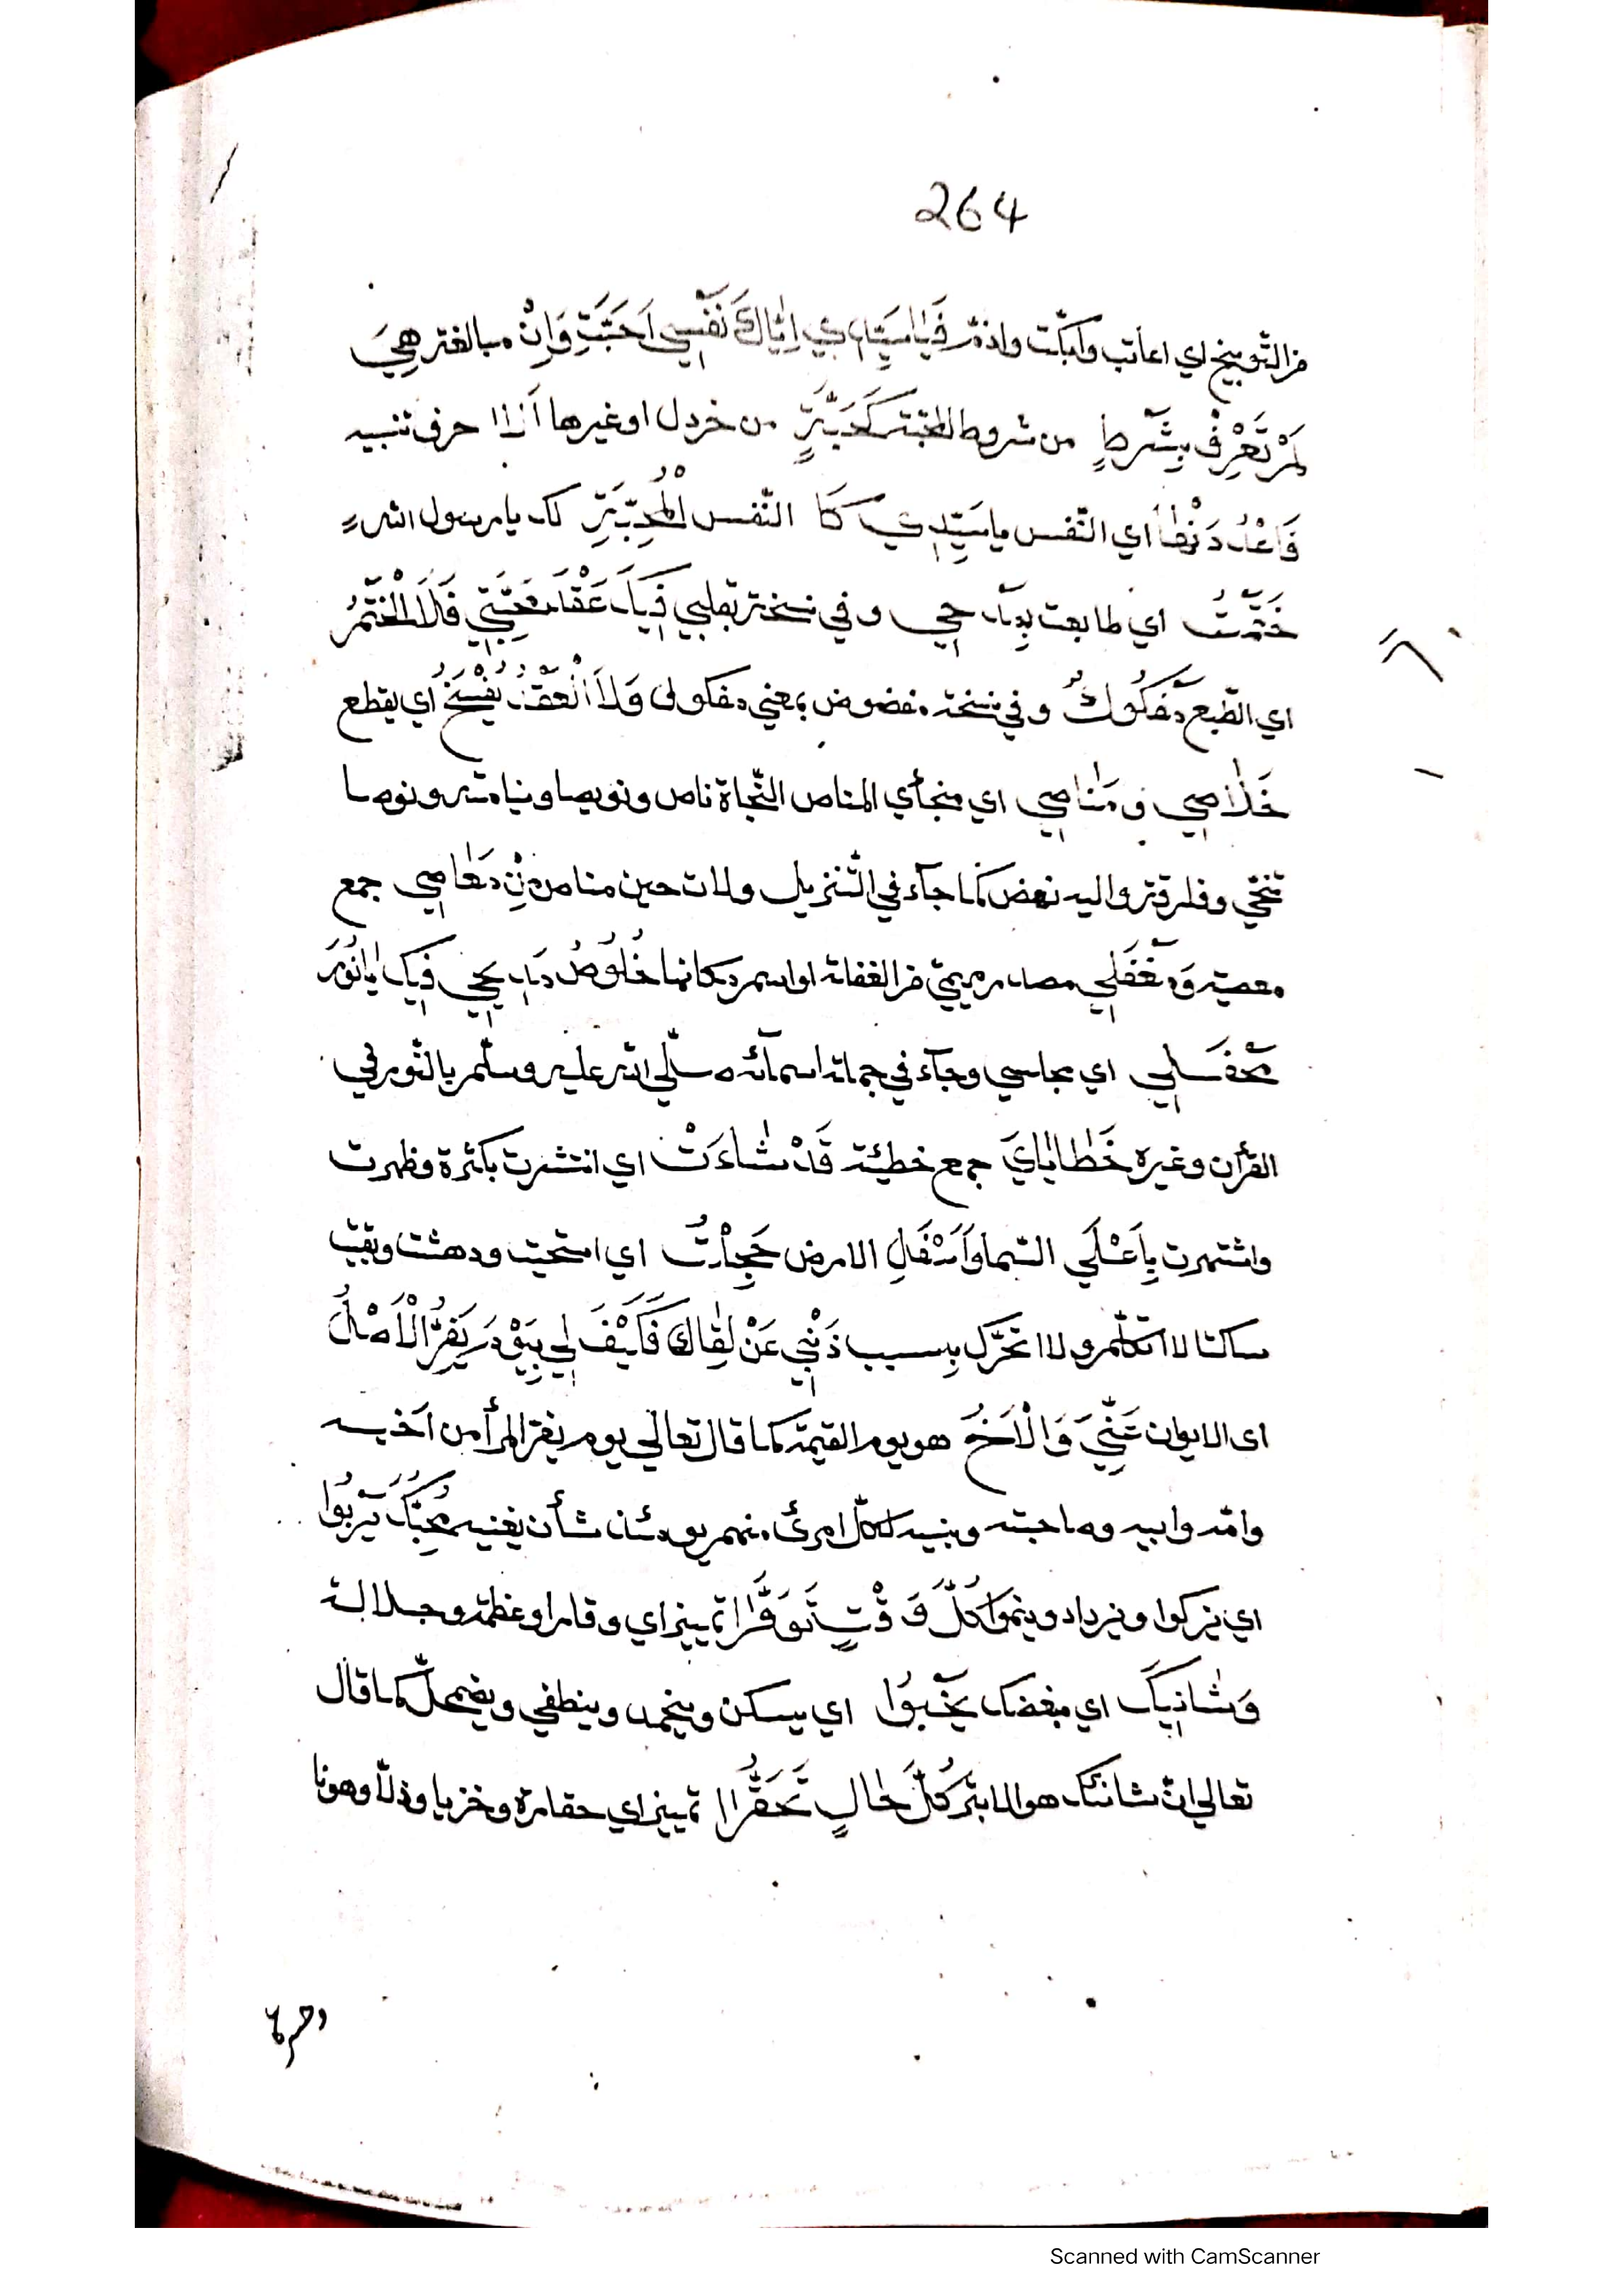 264
من التوبيخ اي اعاتب وابكّت واذمّ فَيَا سَيِّدِي اِيَّاكَ نَفْسِي اَحَبَّتِ وَاِنْ مبالغة هِيَ
لَمْ تَعْرِفْ بِشَرْطٍ من شروط المحبّة كَحَبَّةٍ من خردل او غيرها اَلَا حرف تنبيه
فَاعْدُدَنْهَا اي النّفس يا سَيِّدِي كَا النّفس الْمُحِبَّةِ لك يا رسول الله
خَتَمْتُ اي طابعت بِدِيبَاجِي وفي نسخة بقلبي فِيكَ عَقْدَ مَحَبَّتِي فَلَا الْخَتْمُ
اي الطّبع مَفْكُوكٌ وفي نسخة مفضوض بمعني مفكوك وَلَا الْعَقْدُ يُفْسَخُ اي يقطع
خَلَاصِي وَمَنَاصِي اي منجأي المناص النّجاة ناص ونويصا ونياصة ونوصا
تنحّي وفارقه واليه نهض كما جآء في التّنزيل ولات حين مناص مِنْ مَعَاصِي جمع
معصية وَمَغْفَلِي مصدر ميميّ من الغفلة او اسم مكانها خُلُوصُ فِيكَ يَا نُورَ
مَحْفَلِي اي مجلسي وجآء في جملة اسمآئه صلّي الله عليه وسلّم بالنّور في
القرأن وغيره خَطَايَايَ جمع خطيئة قَدْ شَاعَتْ اي انتشرت بكثرة وظهرت
واشتهرت بِاَعْلَي السّما وَاَسْفَلِ الارض خَجِلْتُ اي استحيت ودهشت وبقيت
ساكتا لا اتكلّم ولا اتحرّك بسبب ذَنْبِي عَنْ لِقَاكَ فَكَيْفَ لِي بِيَوْمٍ يَفِرُّ الْاَصْلُ
اى الابوان عَنِّيَ وَالْاَخُ هو يوم القيٰمة كما قال تعالي يوم يفرّ المرأ من اخيه
وامّه وابيه وصاحبته وبنيه لكلّ امرئ منهم يومئذ شأن يغنيه مُحِبُّكَ يَرْبُوا
اي يزكوا ويزداد وينموا كُلَّ وَقْتٍ تَوَقُّرًا تمييز اي وقارا وعظمة وجلالة
وَشَانِيكَ اي مبغضك يَخْبُوا اي يسكن ويخمد وينطفي ويضمحلّ كما قال
تعالي انّ شانئك هو الابتر كُلَّ حَالٍ تَحَقُّرًا تمييز اي حقارة وخزيا وذلّا وهونا
Scanned with CamScanner